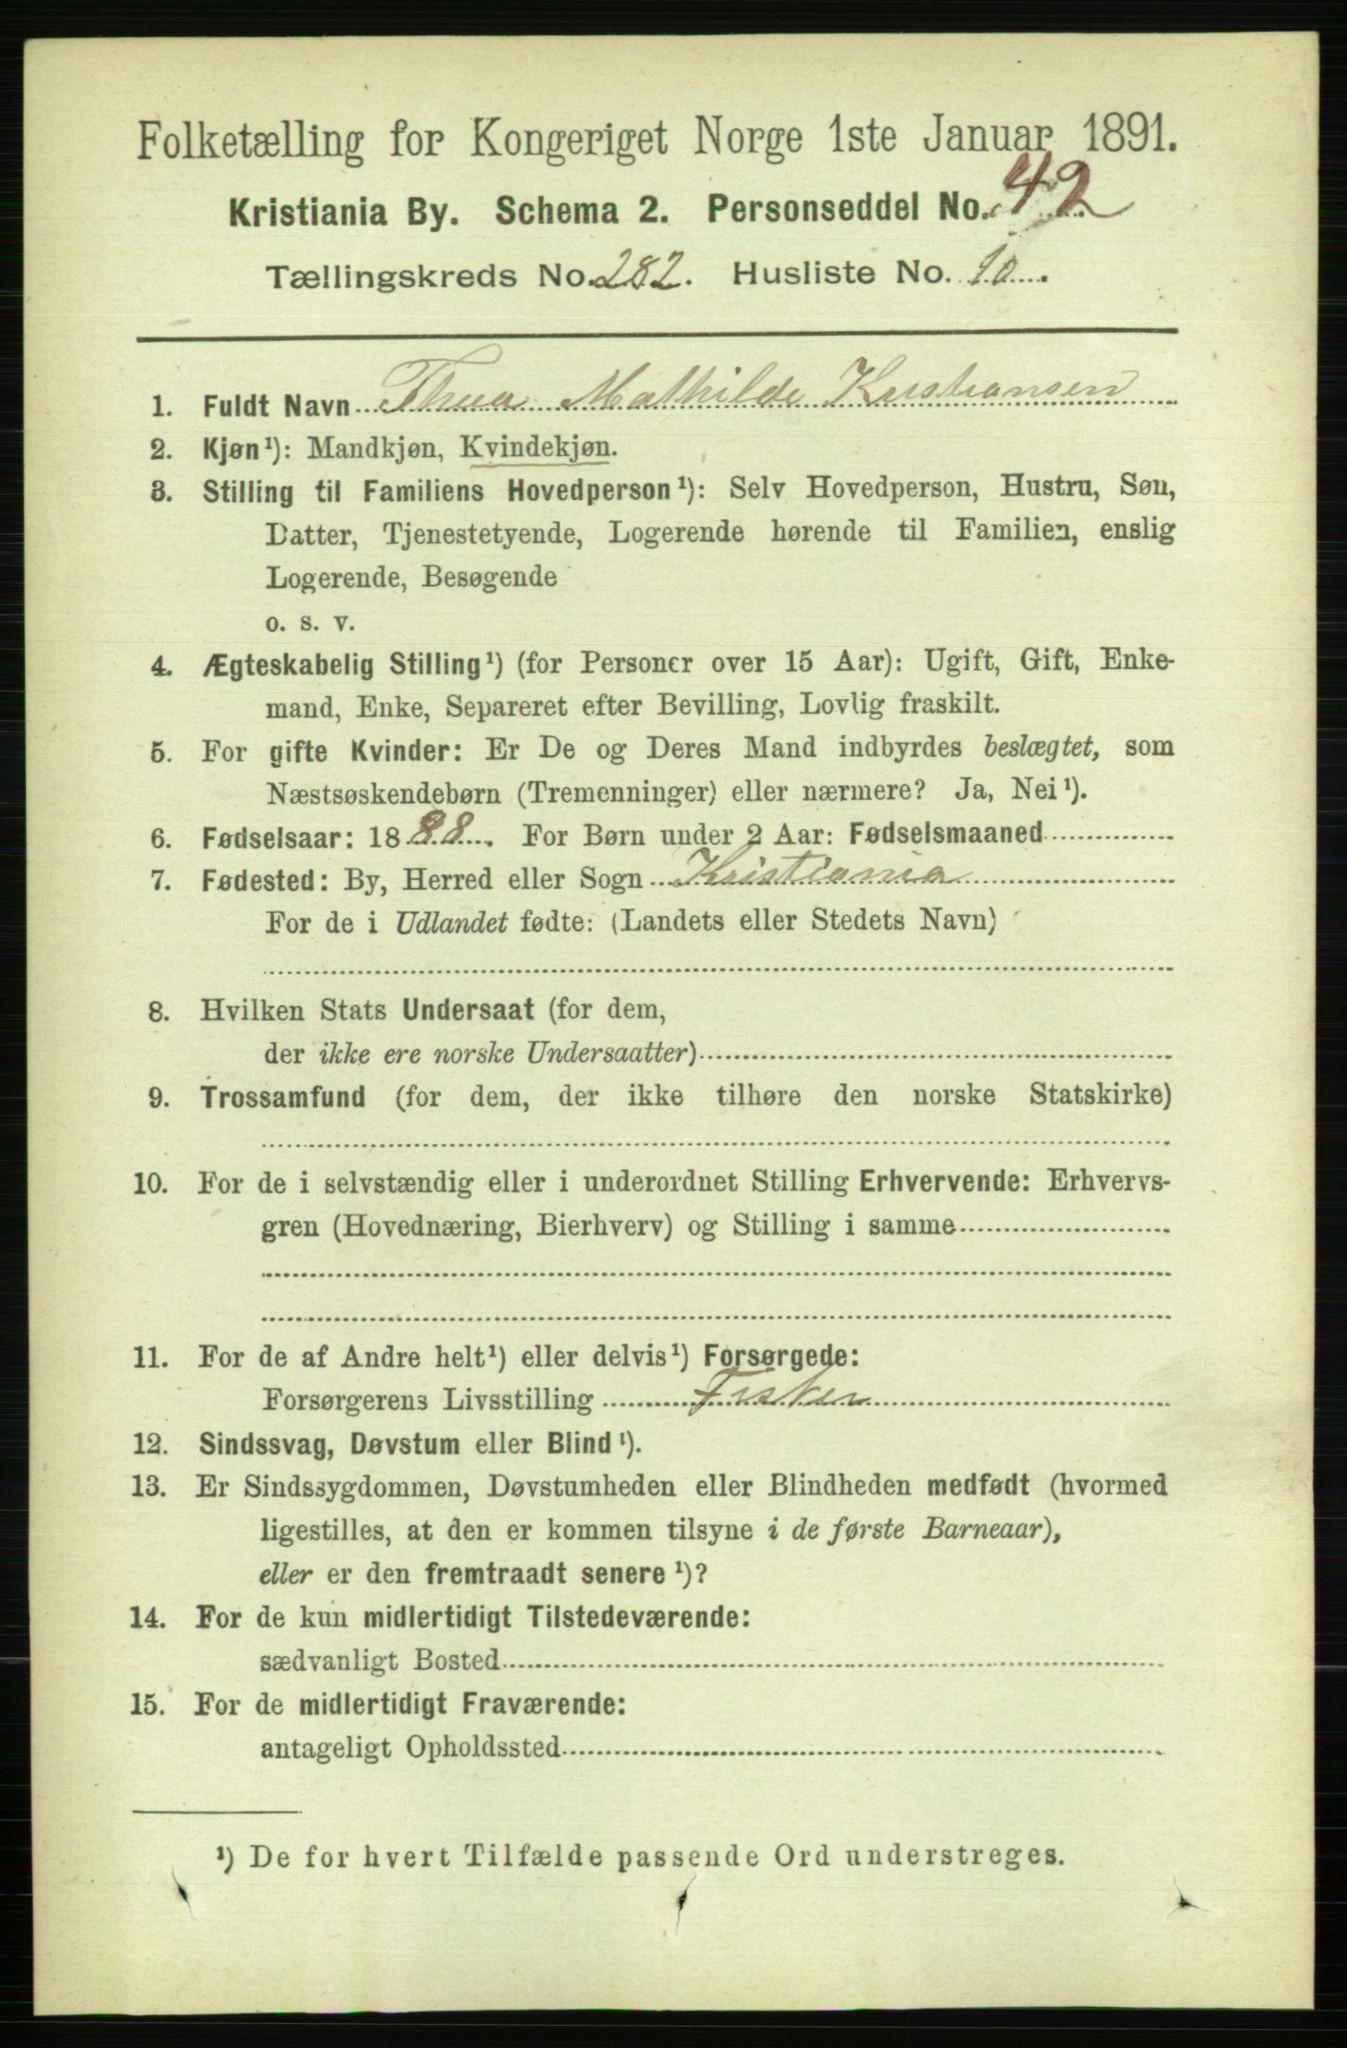 Folketælling for Kongeriget Norge 1ste Januar 1891.
Kristiania By. Schema 2. Personseddel No. 42
Tællingskreds No. 282. Husliste No. 10.
1. Fuldt Navn Thea Mathilde Kristiansen
2. Kjøn¹): Mandkjøn, Kvindekjøn.
3. Stilling til Familiens Hovedperson¹): Selv Hovedperson, Hustru, Søn,
Datter, Tjenestetyende, Logerende hørende til Familien, enslig
Logerende, Besøgende
o. s. v.
4. Ægteskabelig Stilling¹) (for Personer over 15 Aar): Ugift, Gift, Enke-
mand, Enke, Separeret efter Bevilling, Lovlig fraskilt.
5. For gifte Kvinder: Er De og Deres Mand indbyrdes beslægtet, som
Næstsøskendebørn (Tremenninger) eller nærmere? Ja, Nei¹).
6. Fødselsaar: 1888. For Børn under 2 Aar: Fødselsmaaned
7. Fødested: By, Herred eller Sogn Kristiania
For de i Udlandet fødte: (Landets eller Stedets Navn)
8. Hvilken Stats Undersaat (for dem,
der ikke ere norske Undersaatter)
9. Trossamfund (for dem, der ikke tilhøre den norske Statskirke)
10. For de i selvstændig eller i underordnet Stilling Erhvervende: Erhvervs-
gren (Hovednæring, Bierhverv) og Stilling i samme
11. For de af Andre helt¹) eller delvis¹) Forsørgede:
Forsørgerens Livsstilling Fisker
12. Sindssvag, Døvstum eller Blind¹).
13. Er Sindssygdommen, Døvstumheden eller Blindheden medfødt (hvormed
ligestilles, at den er kommen tilsyne i de første Barneaar),
eller er den fremtraadt senere¹)?
14. For de kun midlertidigt Tilstedeværende:
sædvanligt Bosted
15. For de midlertidigt Fraværende:
antageligt Opholdssted
¹) De for hvert Tilfælde passende Ord understreges.